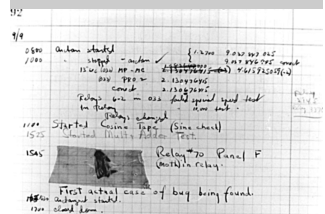 92
9/9
0800 Antan started
1000 " stopped - antan ✓ { 1.2700 9.037 847 025
9.037 846 995 correct
13" uc (032) MP - MC 2.130476415 4.615925059(-2)
033 PRO 2 2.130476415
correct 2.130676415
Relays 6-2 in 033 failed special speed test
in Relay 10,000 test.
Relays changed
1100 Started Cosine Tape (Sine check)
1525 Started Multi Adder Test.
1545 Relay #70 Panel F
(moth) in relay.
First actual case of bug being found.
antangent started.
1700 closed down.